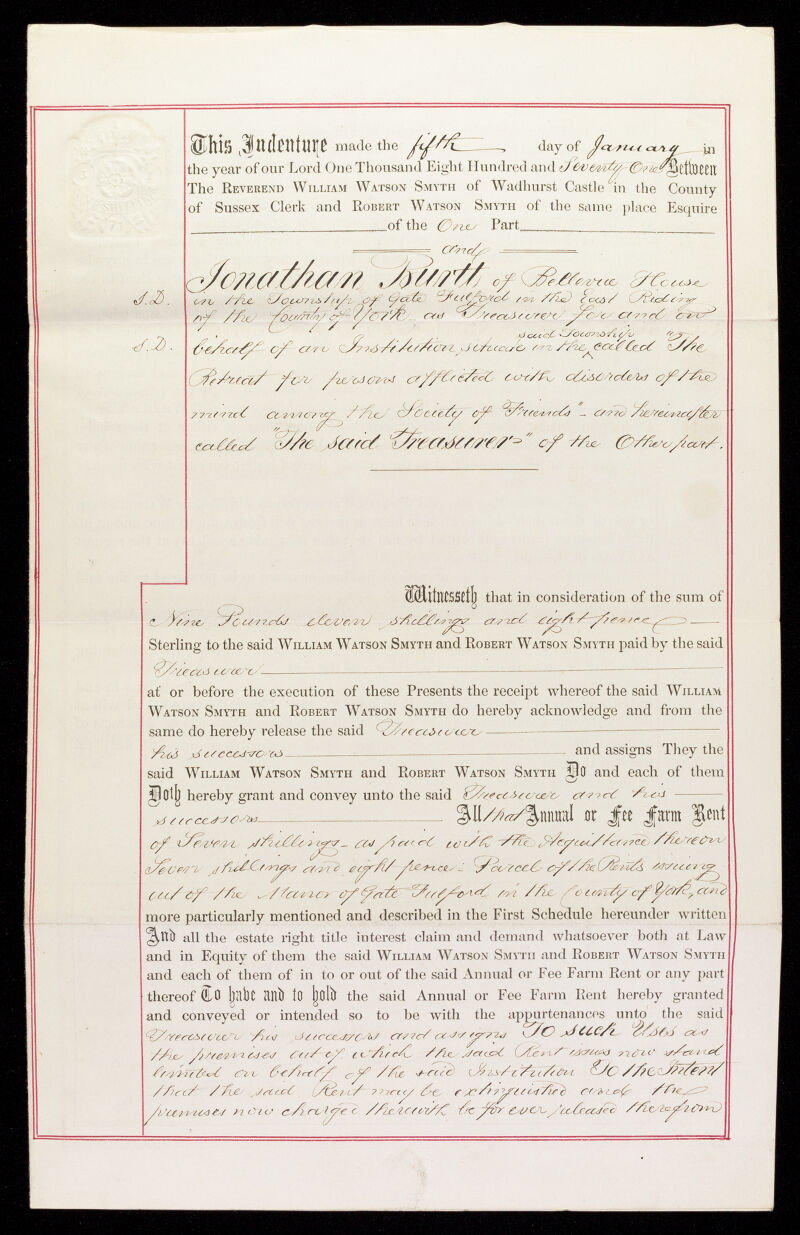 This Indenture made the fifth day of January in
the year of our Lord One Thousand Eight Hundred and Seventy One Between
The Reverend William Watson Smyth of Wadhurst Castle in the County
of Sussex Clerk and Robert Watson Smyth of the same place Esquire
of the One Part
and
Jonathan Burtt of Bellevue House
J.D. in the Township of Gate Fulford in the East Riding
of the County of York as Treasurer for and on
said Township
J.D. behalf of an Institution situate in the ^ called "The
Retreat for persons afflicted with disorders of the
mind among the Society of Friends" - and hereinafter
called "The said Treasurer" of the Other part.
Witnesseth that in consideration of the sum of
Nine Pounds eleven shillings and eight pence
Sterling to the said William Watson Smyth and Robert Watson Smyth paid by the said
Treasurer
at or before the execution of these Presents the receipt whereof the said William
Watson Smyth and Robert Watson Smyth do hereby acknowledge and from the
same do hereby release the said Treasurer
his successors and assigns They the
said William Watson Smyth and Robert Watson Smyth Do and each of them
Doth hereby grant and convey unto the said Treasurer and his
successors All that Annual or Fee Farm Rent
of Seven shillings - as paid with the Acquittance thereon
Seven shillings and eight pence - Parcel of the Rents issuing
out of the Manor of Gate Fulford in the County of York, and
more particularly mentioned and described in the First Schedule hereunder written
And all the estate right title interest claim and demand whatsoever both at Law
and in Equity of them the said William Watson Smyth and Robert Watson Smyth
and each of them of in to or out of the said Annual or Fee Farm Rent or any part
thereof To have and to hold the said Annual or Fee Farm Rent hereby granted
and conveyed or intended so to be with the appurtenances unto the said
Treasurer his successors and assigns To such Uses as
the premises out of which the said Rent issues now stand
limited on behalf of the said Institution To the Intent
that the said Rent may be extinguished and the
premises now charged therewith be for ever released therefrom